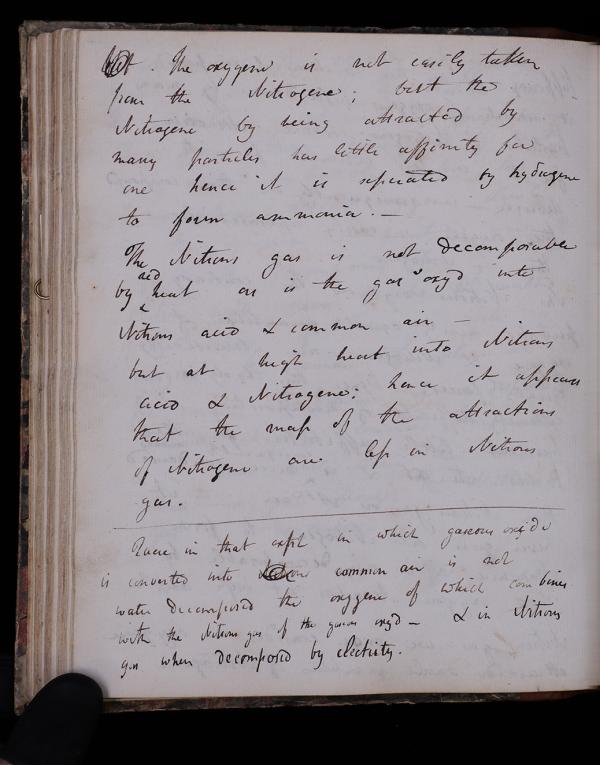 . The oxygene is not easily taken
from the Nitrogene; but the
Nitrogene by being attracted by
many particles has little affinity for
one hence it is separated by hydrogene
to form ammonia. —
The Nitrous gas is not decomposable
by red heat as is the gas s oxyd into
Nitrous acid & common air —
but at high heat into Nitrous
acid & Nitrogene; hence it appears
that the mass of the attractions
of Nitrogene are less in Nitrous
gas.
Quere in that expt in which gaseous oxide
is converted into common air is not
water decomposed the oxygene of which combines
with the Nitrous gas of the gaseous oxyd — & in Nitrous
gas when decomposed by electricity.